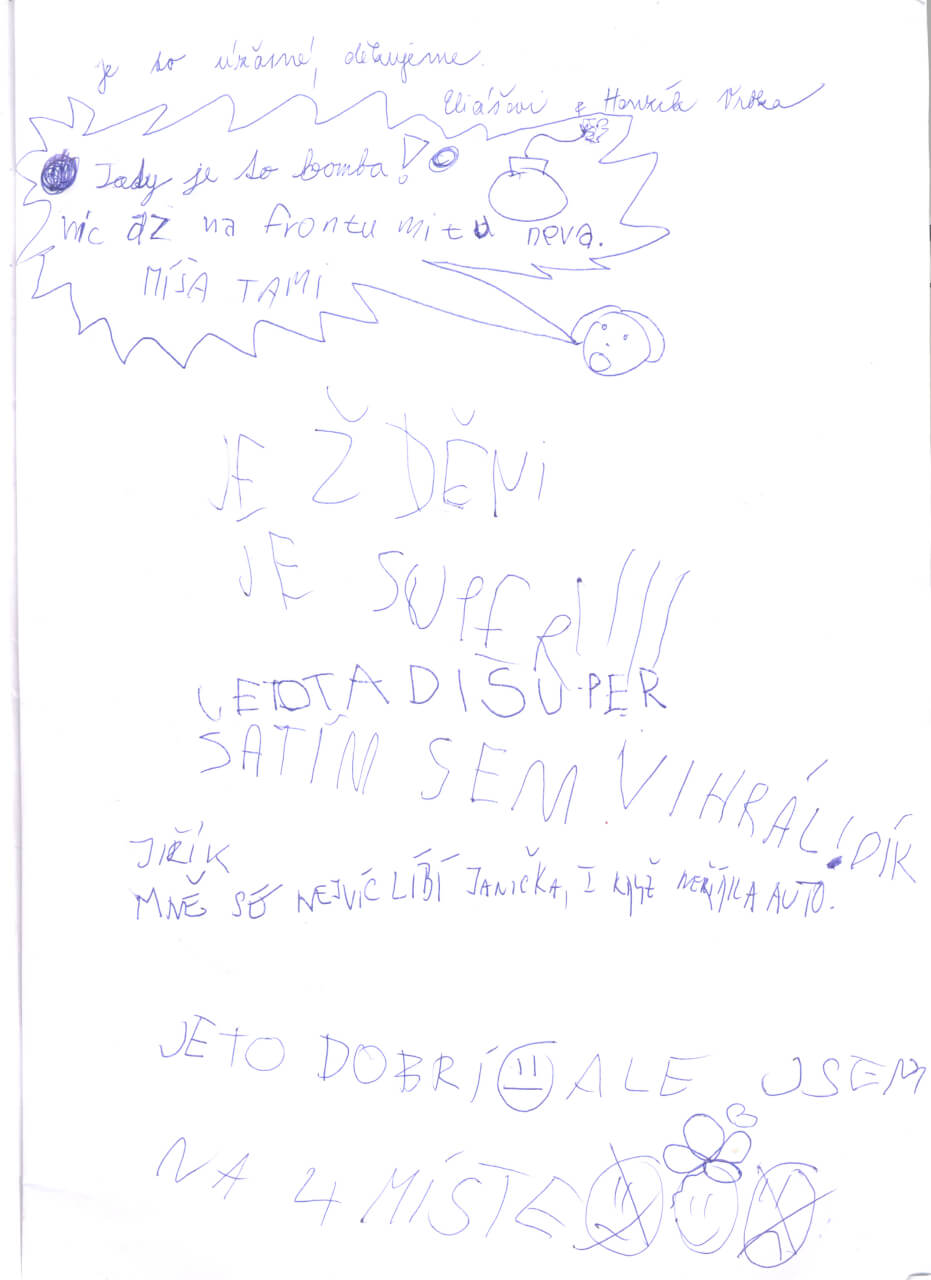 je to úžasné, děkujeme.
Eliášovi a Honzík Vrba
Tady je to bomba!
víc až na frontu mi to neva.
MÍŠA TAMI
JE Ž DĚNI
JE SUPER!!!!
JE TO TADI SUPER
SATÍM SEM VIHRÁL! DÍK
JIŘÍK
MNĚ SE NEJVÍC LÍBÍ JANIČKA, I KDYŽ NEŘÍKLA AUTO.
JETO DOBRÍ ALE JSEM
NA 4 MÍSTE